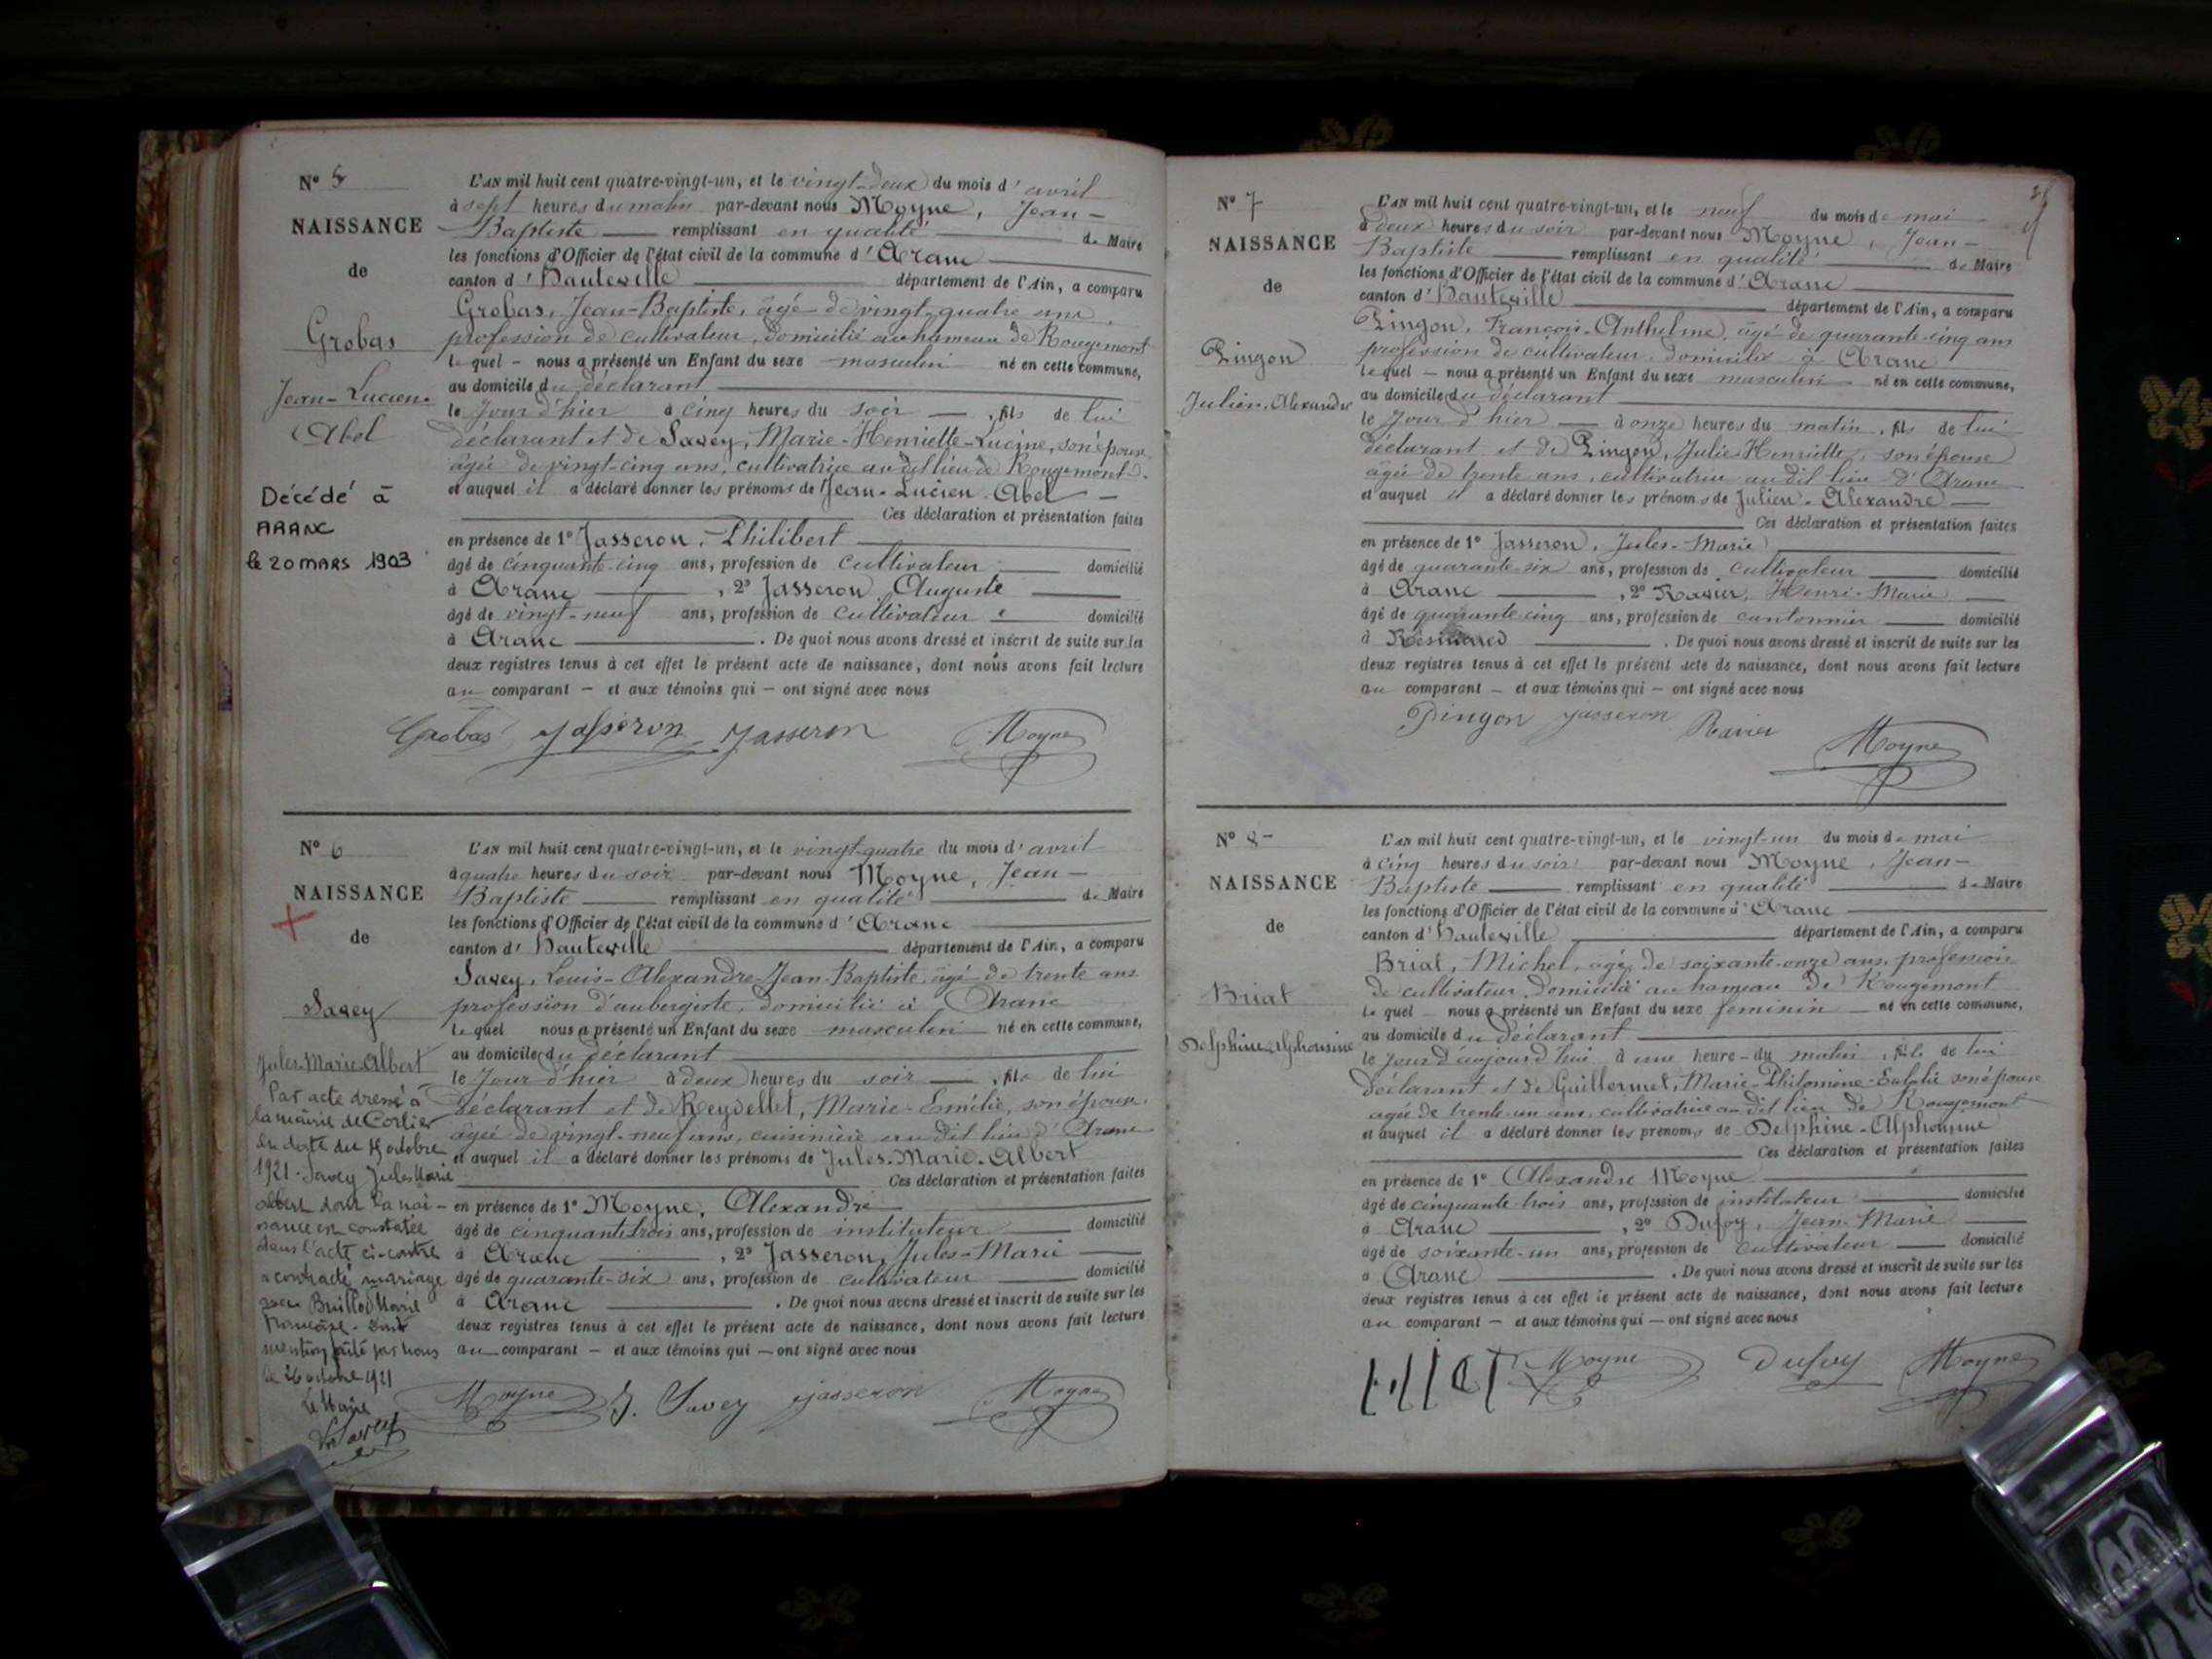 N° 5
NAISSANCE
de
Grobas
Jean-Lucien
Abel
Décédé à
ARANC
le 20 MARS 1903
L'AN mil huit cent quatre-vingt-un, et le vingt-deux du mois d'avril
à sept heures du matin par-devant nous Moyne, Jean-
Baptiste remplissant en qualité de Maire
les fonctions d'Officier de l'état civil de la commune d'Aranc
canton d'Hauteville département de l'Ain, a comparu
Grobas, Jean-Baptiste, âgé de vingt-quatre ans,
profession de cultivateur, domicilié au hameau de Rougemont
lequel - nous a présenté un Enfant du sexe masculin né en cette commune,
au domicile du déclarant
le jour d'hier à cinq heures du soir, fils de lui
déclarant et de Savey, Marie-Henriette-Lucine, son épouse
âgée de vingt-cinq ans, cultivatrice au dit lieu de Rougemont
et auquel il a déclaré donner les prénoms de Jean-Lucien-Abel
Ces déclaration et présentation faites
en présence de 1° Jasseron, Philibert
âgé de cinquante-cinq ans, profession de cultivateur domicilié
à Aranc, 2° Jasseron Auguste
âgé de vingt-neuf ans, profession de cultivateur domicilié
à Aranc. De quoi nous avons dressé et inscrit de suite sur les
deux registres tenus à cet effet le présent acte de naissance, dont nous avons fait lecture
au comparant - et aux témoins qui - ont signé avec nous
Grobas Jasseron Jasseron Moyne
N° 6
NAISSANCE
de
Savey
Jules-Marie-Albert
Par acte dressé à
la mairie de Corlier
en date du octobre
1921 - Savey Jules Marie
albert dont la nais-
sance est constatée
dans l'acte ci-contre
a contracté mariage
avec Marie
Françoise - dont
mention faite par nous
le 26 octobre 1921
Le Maire
L'AN mil huit cent quatre-vingt-un, et le vingt-quatre du mois d'avril
à quatre heures du soir par-devant nous Moyne, Jean-
Baptiste remplissant en qualité de Maire
les fonctions d'Officier de l'état civil de la commune d'Aranc
canton d'Hauteville département de l'Ain, a comparu
Savey, Louis-Alexandre-Jean-Baptiste, âgé de trente ans
profession d'aubergiste, domicilié à Aranc
lequel nous a présenté un Enfant du sexe masculin né en cette commune,
au domicile du déclarant
le jour d'hier à deux heures du soir, fils de lui
déclarant et de Reydellet, Marie-Emélie, son épouse,
âgée de vingt-neuf ans, cuisinière au dit lieu d'Aranc
et auquel il a déclaré donner les prénoms de Jules-Marie-Albert
Ces déclaration et présentation faites
en présence de 1° Moyne, Alexandre
âgé de cinquante trois ans, profession de instituteur domicilié
à Aranc, 2° Jasseron, Jules-Marie
âgé de quarante-six ans, profession de cultivateur domicilié
à Aranc. De quoi nous avons dressé et inscrit de suite sur les
deux registres tenus à cet effet le présent acte de naissance, dont nous avons fait lecture
au comparant - et aux témoins qui - ont signé avec nous
Moyne Savey Jasseron Moyne
N° 7
NAISSANCE
de
Pingon
Julien-Alexandre
L'AN mil huit cent quatre-vingt-un, et le neuf du mois de mai
à deux heures du soir par-devant nous Moyne, Jean-
Baptiste remplissant en qualité de Maire
les fonctions d'Officier de l'état civil de la commune d'Aranc
canton d'Hauteville département de l'Ain, a comparu
Pingon, François-Anthelme, âgé de quarante-cinq ans
profession de cultivateur domicilié à Aranc
lequel - nous a présenté un Enfant du sexe masculin né en cette commune,
au domicile du déclarant
le jour d'hier à onze heures du matin, fils de lui
déclarant et de Pingon, Julie-Henriette, son épouse
âgée de trente ans, cultivatrice au dit lieu d'Aranc
et auquel il a déclaré donner les prénoms de Julien-Alexandre
Ces déclaration et présentation faites
en présence de 1° Jasseron, Jules-Marie
âgé de quarante-six ans, profession de cultivateur domicilié
à Aranc, 2° Ravier, Henri-Marie
âgé de quarante-cinq ans, profession de cantonnier domicilié
à Résinand. De quoi nous avons dressé et inscrit de suite sur les
deux registres tenus à cet effet le présent acte de naissance, dont nous avons fait lecture
au comparant - et aux témoins qui - ont signé avec nous
Pingon Jasseron Ravier Moyne
N° 8
NAISSANCE
de
Briat
Delphine-Alphonsine
L'AN mil huit cent quatre-vingt-un, et le vingt-un du mois de mai
à cinq heures du soir par-devant nous Moyne, Jean-
Baptiste remplissant en qualité de Maire
les fonctions d'Officier de l'état civil de la commune d'Aranc
canton d'Hauteville département de l'Ain, a comparu
Briat, Michel, âgé de soixante-onze ans, profession
de cultivateur domicilié au hameau de Rougemont
lequel nous a présenté un Enfant du sexe féminin né en cette commune,
au domicile du déclarant
le jour d'aujourd'hui à une heure du matin, fille de lui
déclarant et de Guillermet, Marie-Philomène-Eulalie son épouse
âgée de trente-un ans, cultivatrice au dit lieu de Rougemont
et auquel il a déclaré donner les prénoms de Delphine-Alphonsine
Ces déclaration et présentation faites
en présence de 1° Alexandre Moyne
âgé de cinquante-trois ans, profession de instituteur domicilié
à Aranc, 2° Dufoy, Jean-Marie
âgé de soixante-un ans, profession de cultivateur domicilié
à Aranc. De quoi nous avons dressé et inscrit de suite sur les
deux registres tenus à cet effet le présent acte de naissance, dont nous avons fait lecture
au comparant - et aux témoins qui - ont signé avec nous
Moyne Dufoy Moyne